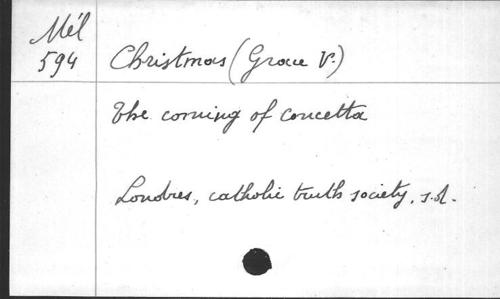 Mél
594
Christmas (Grace V.)
The coming of concetta
Londres, catholic truth society, s.d.